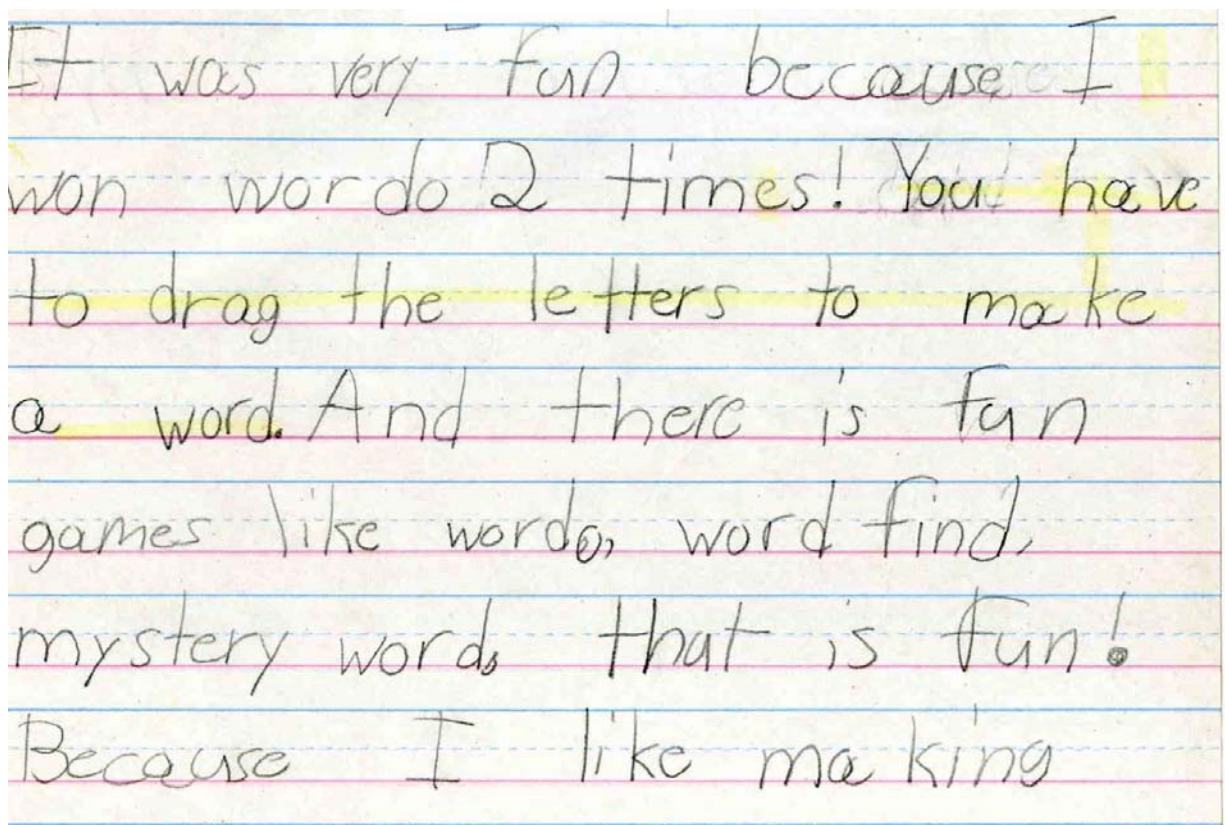 It was very fun because I
won wordo 2 times! You have
to drag the letters to make
a word. And there is fun
games like wordo, word find,
mystery word, that is fun!
Because I like making